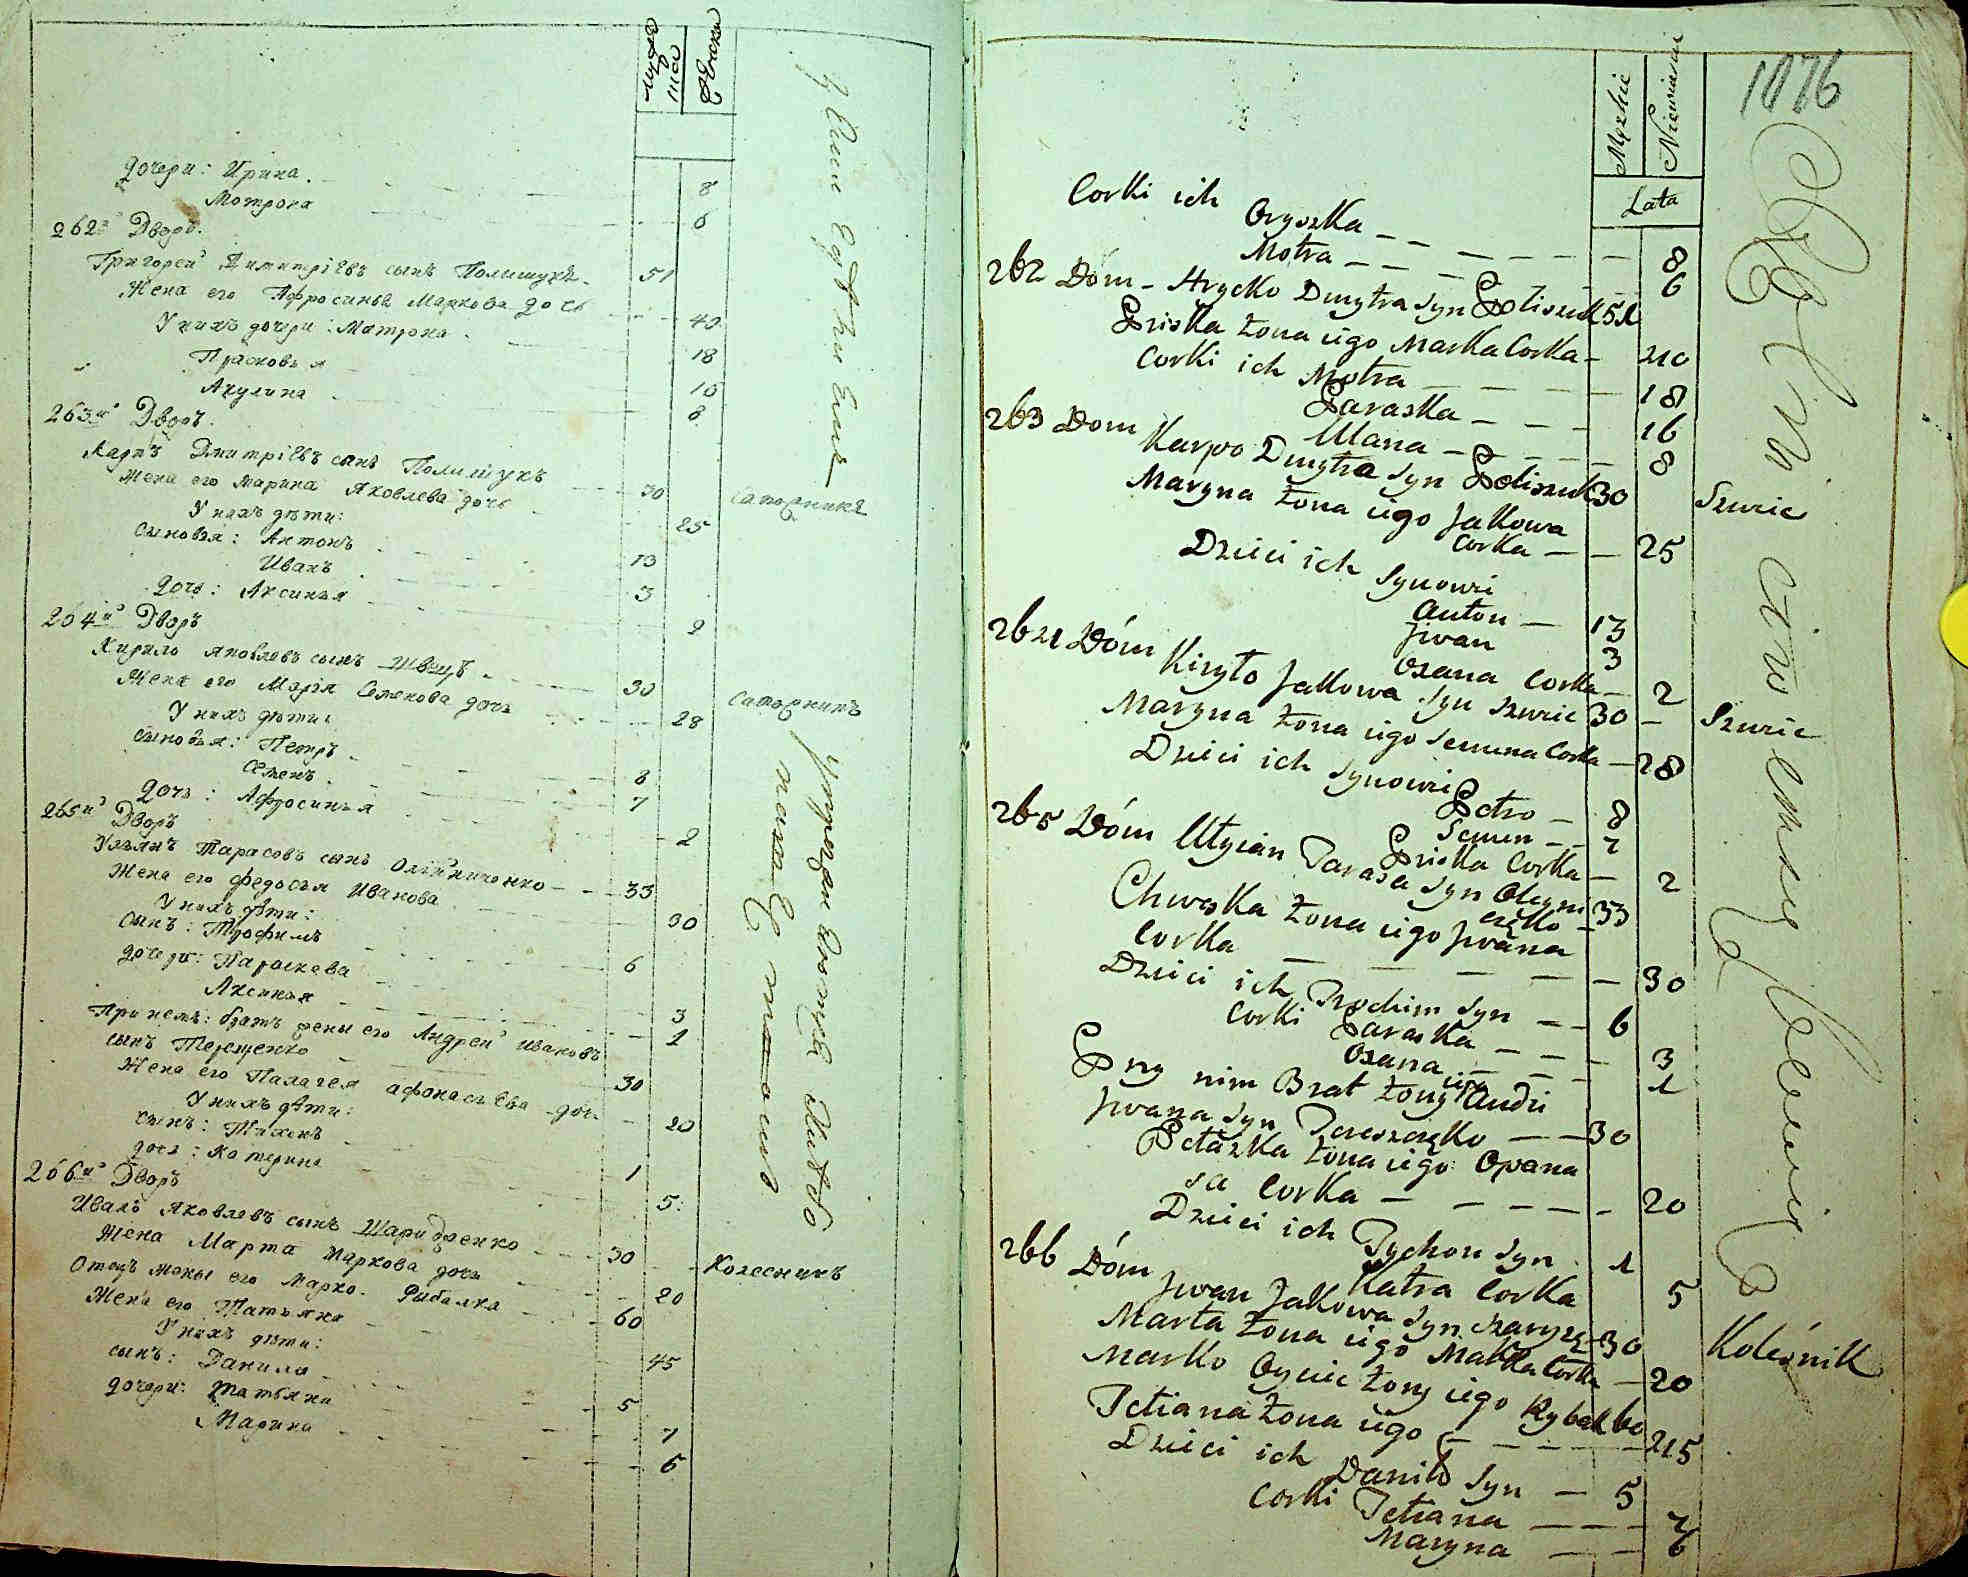 мужеска
лѣта
женска
дочери: Ирина 8
Мотрона 6
262й Дворъ.
Григорей Димитріевъ сынъ Полищукъ 51
Жена его Афросинья Маркова дочь 40
У нихъ дочери: Матрона 18
Прасковья 16
Акулина 8
263й Дворъ.
Карпъ Дмитріевъ сынъ Полищукъ 30 сапожникъ
Жена его Марина Яковлева дочь 25
У нихъ дѣти:
сыновья: Антонъ 13
Иванъ 3
дочь: Аксинья 2
264й Дворъ
Кирило Яковлевъ сынъ Швецъ 30 сапожникъ
Жена его Марія Семенова дочь 28
У нихъ дѣти:
сыновья: Петръ 8
Семенъ 7
дочь: Афросинья 2
265й Дворъ
Ульянъ Тарасовъ сынъ Олійниченко 33
Жена его Федосья Иванова 30
У нихъ дѣти:
сынъ: Трофимъ 6
дочери: Параскева 3
Аксинья 1
При немъ: братъ жены его Андрей Ивановъ
сынъ Терещенко 30
Жена его Палагея Афонасьева дочь 20
У нихъ дѣти:
сынъ: Тихонъ 1
дочь: Катерина 5
266й Дворъ
Иванъ Яковлевъ сынъ Шаридзенко 30 Колесникъ
Жена Марта Маркова дочь 20
Отецъ жены его Марко Рибалка 60
Жена его Татьяна 45
У нихъ дѣти:
сынъ: Данило 5
дочери: Татьяна 7
Марина 6
1076
Męzkie
Niewieście
Lata
Corki ich Oryszka 8
Motra 6
262 Dóm Hrycko Dmytra syn Poliszuk 51
Priska żona iego Marka Corka 40
Corki ich Motra 18
Paraska 16
Ulana 8
263 Dom Karpo Dmytra syn Poliszuk 30 Szwiec
Maryna żona iego Jakowa
Corka 25
Dzieci ich Synowie
Anton 13
Jwan 3
Oxana Corka 2
264 Dóm Kiryło Jakowa syn Szwiec 30 Szwiec
Maryna żona iego Semena Corka 28
Dzieci ich Synowie
Petro 8
Semen 7
Priska Corka 2
265 Dóm Ulyian Tarasa syn Oleyni
częko 33
Chweska żona iego Jwana
Corka 30
Dzieci ich Trochim Syn 6
Corki Paraska 3
Oxana 1
Przy nim Brat żony iego Andri
Jwana Syn Tereszczęko 30
Pełazka żona iego Opana
sa Corka 20
Dzieci ich Tychon Syn 1
Katra Corka 5
266 Dóm Jwan Jakowa Syn Szaryzę 30 Kołeśnik
Marta żona iego Marka Corka 20
Marko Oyciec żony iego Rybałk 60
Tetiana żona iego 45
Dzieci ich Daniło Syn 5
Corki Tetiana 7
Maryna 6